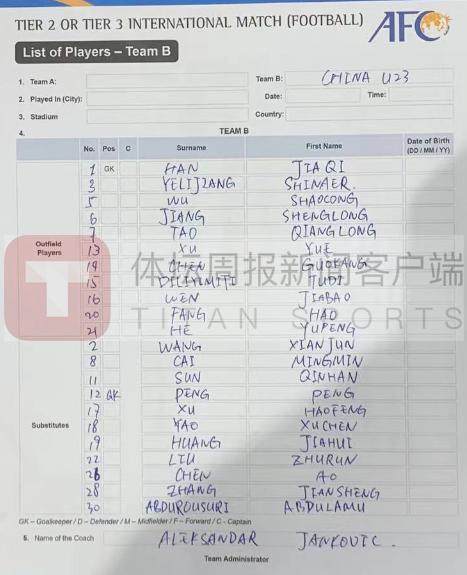 TIER 2 OR TIER 3 INTERNATIONAL MATCH (FOOTBALL) AFC
List of Players – Team B
1. Team A: Team B: CHINA U23
2. Played in (City): Date: Time:
3. Stadium Country:
4. TEAM B
No. Pos C Surname First Name Date of Birth (DD / MM / YY)
Outfield Players
1 GK HAN JIAQI
3 YELIJIANG SHINAER
5 WU SHAOCONG
6 JIANG SHENGLONG
7 TAO QIANGLONG
13 XU YUE
14 CHEN GUOKANG
15 DILIYIMITI TUDI
16 WEN JIABAO
20 FANG HAO
21 HE YUPENG
Substitutes
2 WANG XIANJUN
8 CAI MINGMIN
11 SUN QINHAN
12 GK PENG PENG
17 XU HAOFENG
18 YAO XUCHEN
19 HUANG JIAHUI
22 LIU ZHURUN
26 CHEN AO
28 ZHANG JIANSHENG
30 ABDUROUSURI ABDULAMU
体坛周报新闻客户端
TITAN SPORTS
GK – Goalkeeper / D – Defender / M – Midfielder / F – Forward / C - Captain
5. Name of the Coach ALEKSANDAR JANKOVIC.
Team Administrator